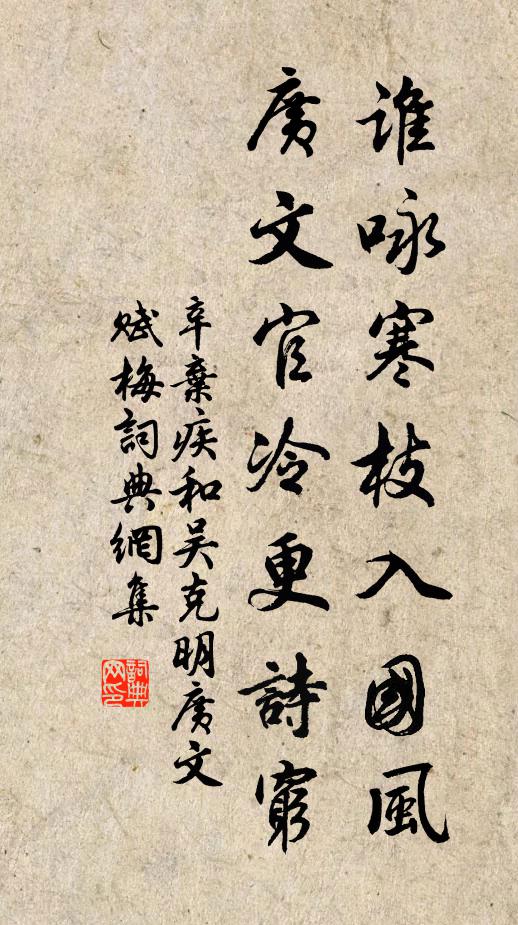 誰咏寒枝入國風
廣文官冷更詩窮
辛棄疾和吳克明廣文
賦梅詞典網集
詞典
网印